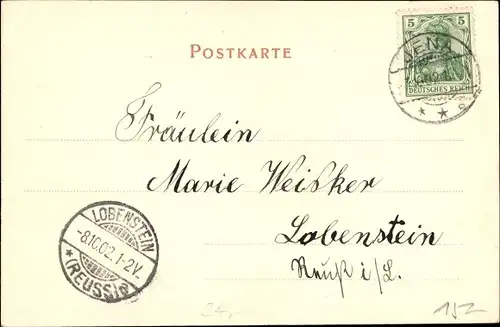 POSTKARTE
5 5
DEUTSCHES REICH
JENA
Fräulein
Marie Weisker
Lobenstein
Reuß i/L.
LOBENSTEIN
-8.10.02.1-2V.
* (REUSS) a
152